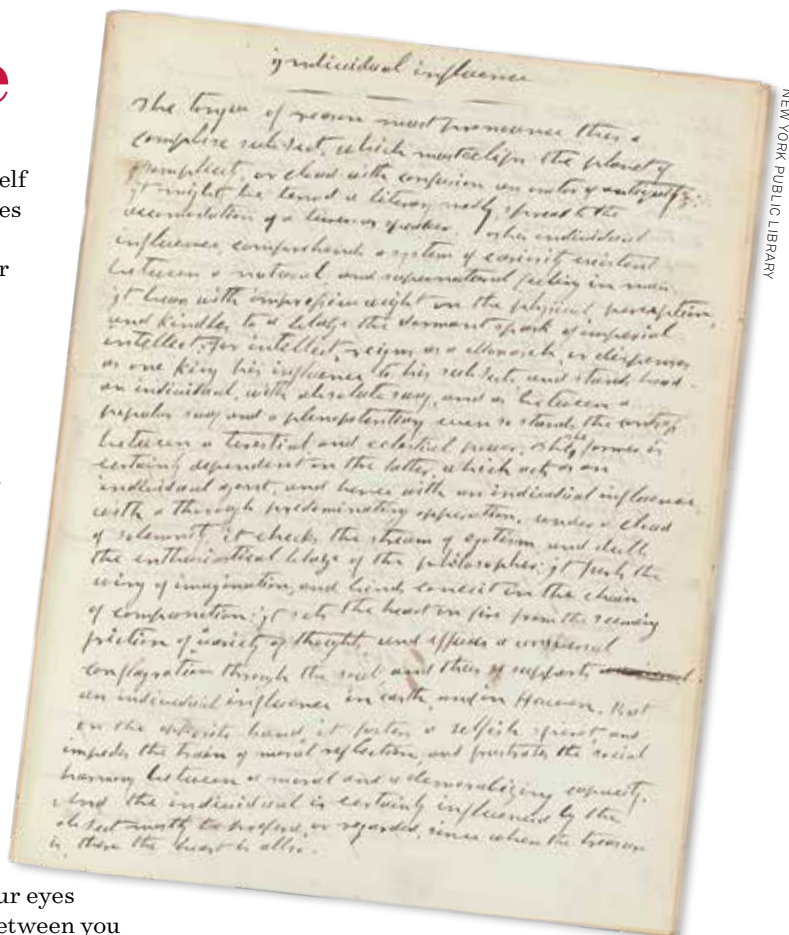 e
elf
es
r
ur eyes
etween you
NEW YORK PUBLIC LIBRARY
Individual influence
The tongue of reason must pronounce this a
subject, which must eclips the planet of
or cloud with confusion an orator of antiquity:
It might be termed a literary medly, spread to the
acomodation of a or speaker. individual
influence comprehends a system of variety existent
between a natural and supernatural feeling in man.
It bears with impressive weight on the physical perception,
and kindles to a blaze the dormant spark of imperial
intellect; for intellect, reigns as a Monarch, or dispenses
as one king his influence to his subjects and stands
an individual, with absolute sway, and as between a
popular sway and a even so stands the
between a terestial and celestial power, the former is
certainly dependent on the latter, which acts as an
individual agent, and hence with an individual influence.
with a through predominating opperation, under a cloud
of solemnity, it checks the stream of egotism, and
the enthusiastical blaze of the philosopher: it the
wing of imagination, and binds conceit in the chain
of compunction: it sets the heart on fire from the seeming
friction of variety of thought, and a universal
conflagration through the soul and thus it supports
an individual influence in earth, and in Heaven. But
on the opposite hand, it fosters a selfish spirit, and
impedes the train of moral reflection, and frustrates the social
harmony between a moral and a demoralizing capacity.
And the individual is certainly influenced by the
object mostly to or regarded, since where the treasure
is, there the heart is allso.